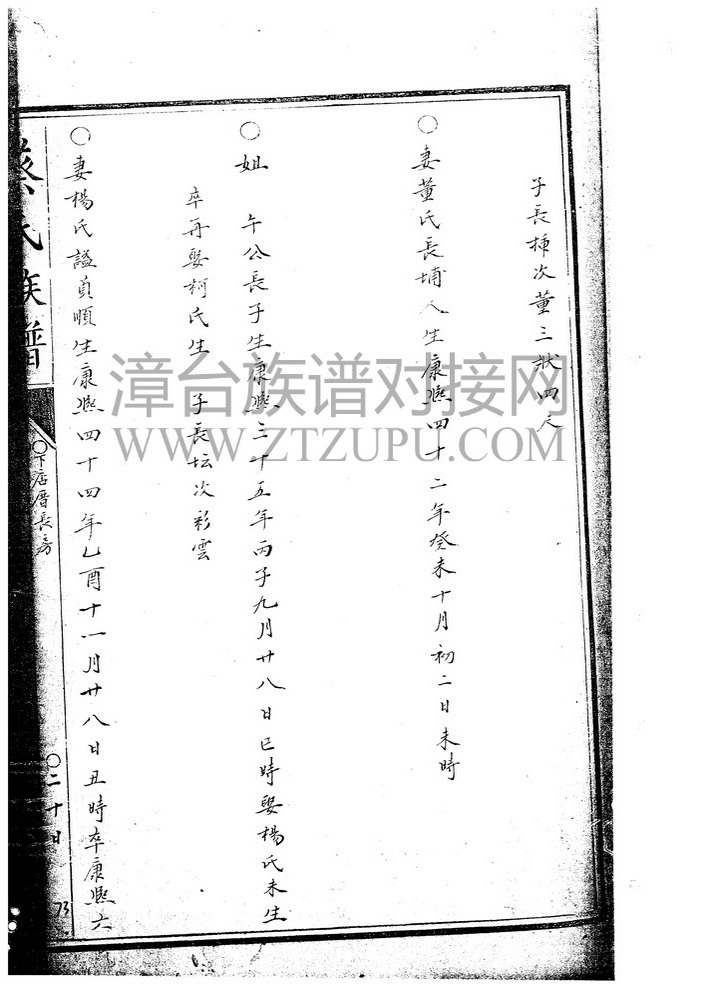 子長插次董三狀四尺
○妻董氏長埔人生康熙四十二年癸未十月初二日未時
○姐 午公長子生康熙三十五年丙子九月廿八日巳時娶楊氏未生
卒再娶柯氏生 子長坛次彩雲
○妻楊氏謚貞順生康熙四十四年乙酉十一月廿八日丑時卒康熙六
蔡氏族譜
○下店厝長房
○二十
73
漳台族谱对接网
WWW.ZTZUPU.COM